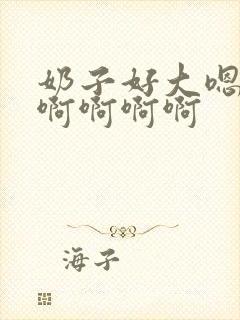 奶子好大嗯
啊啊啊啊
海子